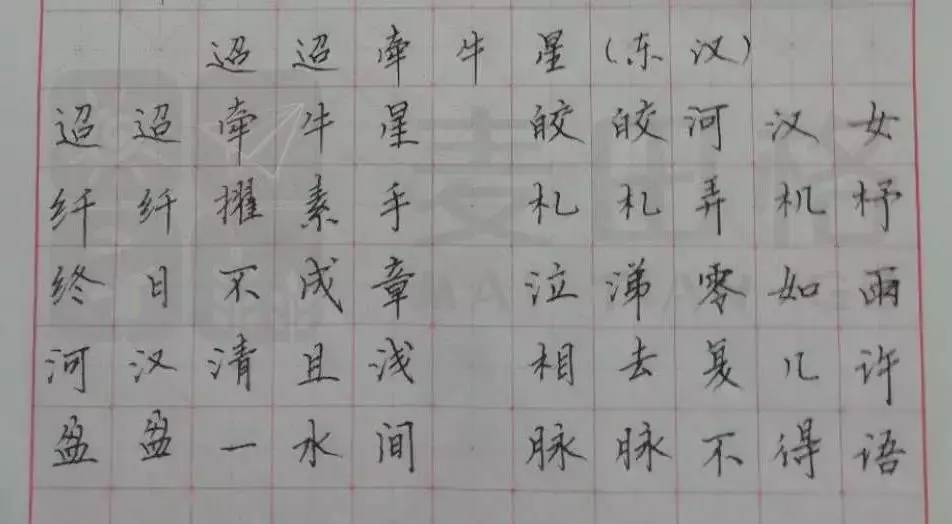 迢迢牵牛星(东汉)
迢迢牵牛星 皎皎河汉女
纤纤擢素手 札札弄机杼
终日不成章 泣涕零如雨
河汉清且浅 相去复几许
盈盈一水间 脉脉不得语